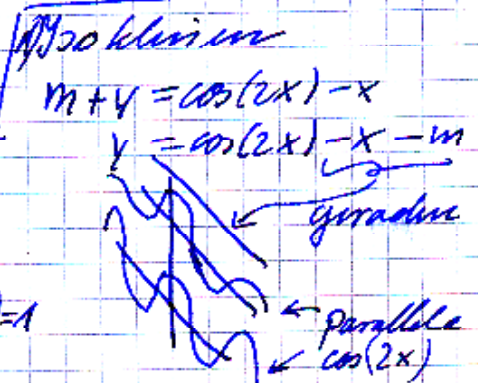 Isoklinen
m+y = cos(2x) -x
y = cos(2x) -x -m
geraden
=1
parallele
cos(2x)